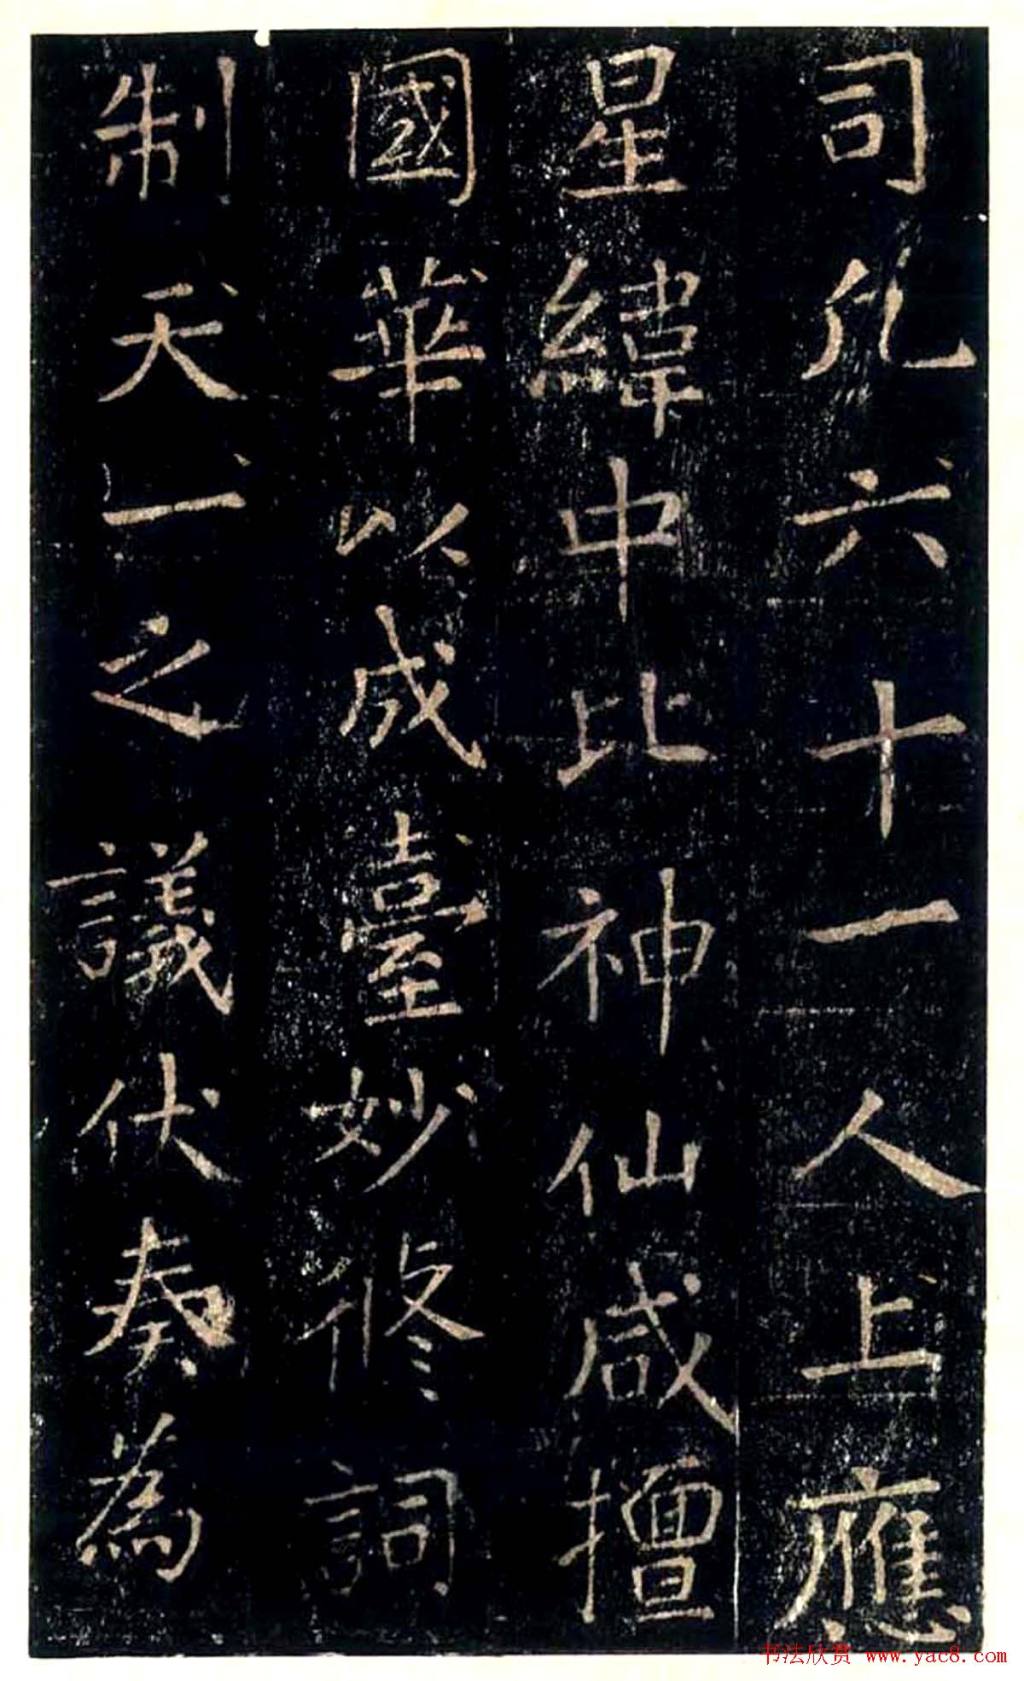 司凡六十一人上應
星緯中比神仙咸擅
國華以成臺妙修詞
制天一之議伏奏為
书法欣赏 www.yac8.com